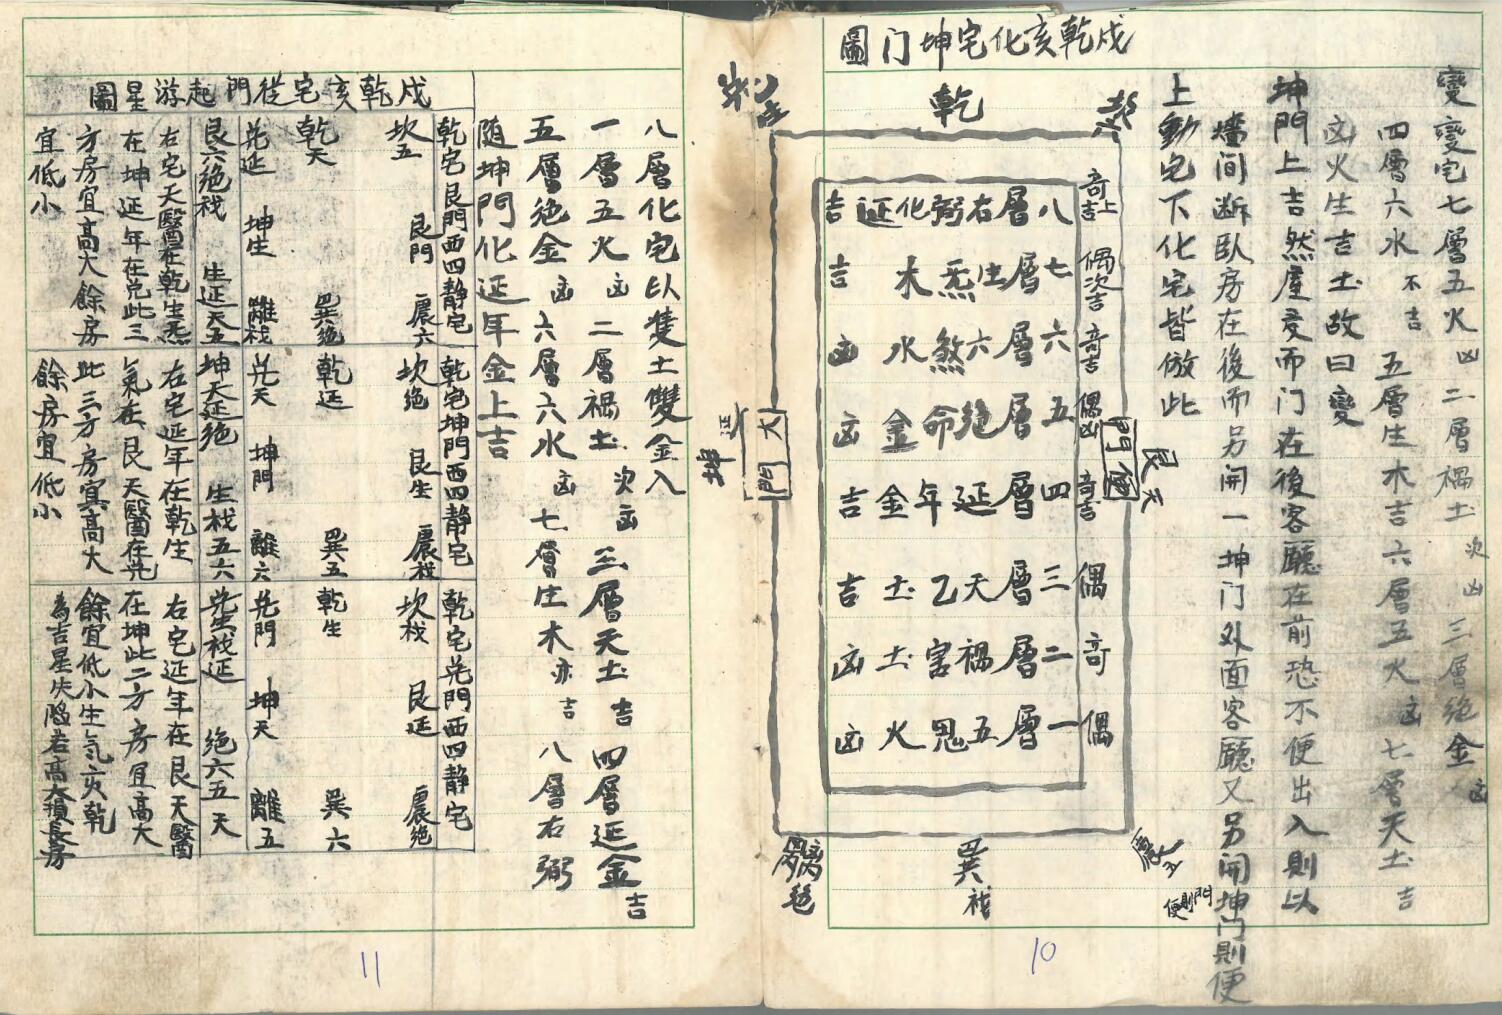 變變宅七層五火凶二層禍土次凶三層绝金凶
四層六水不吉五層生木吉六層五火凶七層天土吉
凶火生吉土故曰變
坤門上吉然屋爻而门在後客廳在前恐不便出入則以
墻间断臥房在後而另開一坤门外面客廳又另開坤门則便
上動宅下化宅皆倣此
戍乾亥化宅坤门圖
乾
奇上吉
偶次吉
奇吉
偶凶
奇吉
偶
奇
偶
八層右弼化延吉
七層生炁木吉
六層六煞水凶
五層绝命金凶
四層延年金吉
三層天乙土吉
二層禍害土凶
一層五鬼火凶
艮天
大門
坤延
巽禍
門則便
10
八層化宅以隻土雙金入
一層五火凶二層禍土次凶三層天土吉四層延金吉
五層绝金凶六層六水凶七層生木亦吉八層右弼
随坤門化延年金上吉
戍乾亥宅從門起游星圖
乾宅艮門西四静宅
坎五 艮門 震六
乾天 巽絶
兑延 坤生 離禍
艮六絶禍 生延天五
右宅天醫在乾生炁
在坤延年在兑此三
方房宜高大餘房
宜低小
乾宅坤門西四静宅
坎绝 艮生 震禍
乾延 巽五
兑天 坤門 離六
坤天延绝 生禍五六
右宅延年在乾生
氣在艮天醫在兑
此三方房宜高大
餘房宜低小
乾宅兑門西四静宅
坎禍 艮延 震绝
乾生 巽六
兑門 坤天 離五
兑生禍延 绝六五天
右宅延年在艮天醫
在坤此二方房宜高大
餘宜低小生气亥乾
為吉星失陷若高大損長房
11